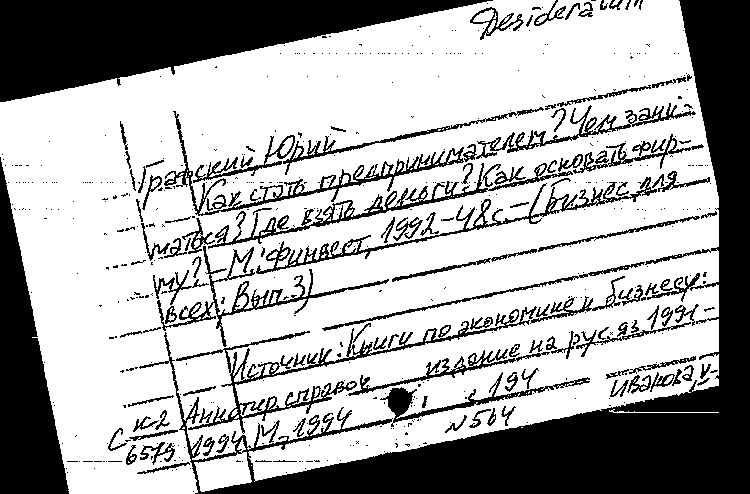 Desideratum
Графский, Юрий
Как стать предпринимателем? Чем зани-
маться? Где взять деньги? Как основать фир-
му? – М.: Финвест, 1992 – 48 с. – (Бизнес для
всех; Вып. 3)
Источник: Книги по экономике и бизнесу:
Аннотир. справок издание на рус. яз. 1991 –
1994 М., 1994 с 194 Иванова, к-
С к-2
6579
№ 564